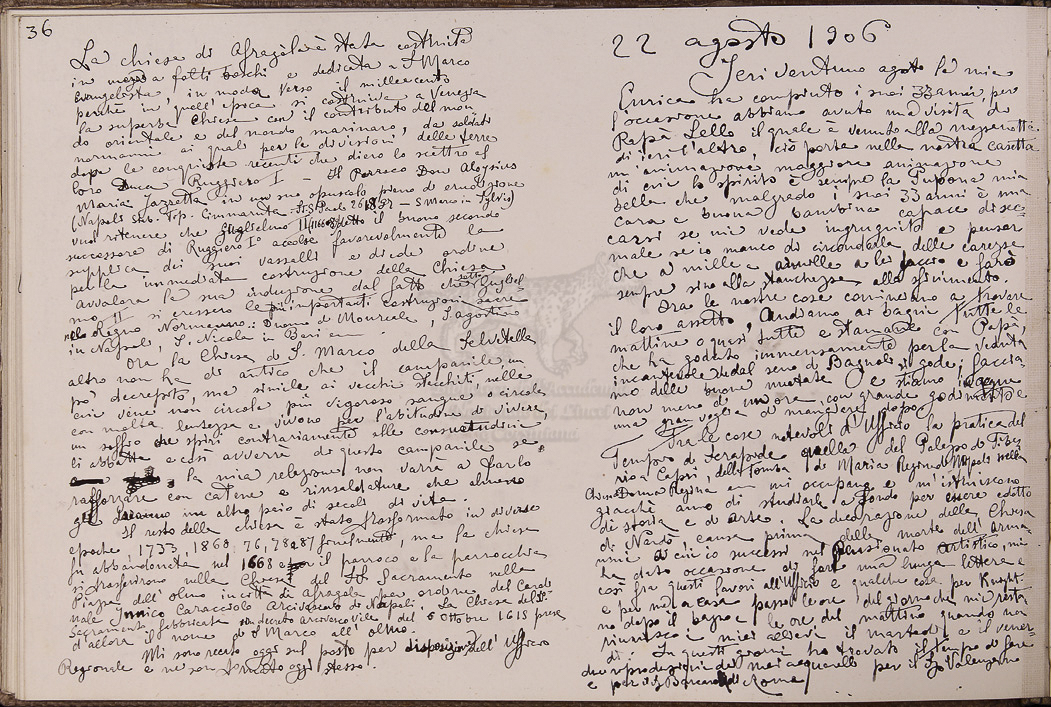 36
La chiesa di Afragola è stata costruita
in mezzo a folti boschi e dedicata a S. Marco
Evangelista in modo verso il millecento
perchè in quell'epoca si costruiva a Venezia
la superba Chiesa con il contributo del mon
do orientale e del mondo marinaro, da soldati
normanni ai quali per le divisioni delle terre
dopo le conquiste recenti che diero lo scettro al
loro Duca Ruggiero I — Il Parroco Don Aloysius
Maria Jazzetta in un suo opuscolo pieno di erudizione
(Napoli Stab. Tip. — S. Marco in Sylvis)
vuol ritenere che Guglielmo II detto il buono secondo
successore di Ruggiero I° accolse favorevolmente la
supplica dei suoi vassalli e diede ordine
per la immediata costruzione della Chiesa
avvalora la sua induzione dal fatto che sotto Gugliel
mo II si eressero le più importanti costruzioni sacre
nello Regno Normanno: Duomo di Monreale, S. Agostino
in Napoli, S. Nicola in Bari ecc.
Ora la Chiesa di S. Marco della Selvetella
altro non ha di antico che il campanile, un
po' decrepito, ma simile ai vecchi stecchiti nelle
cui vene non circola più vigoroso sangue o circola
con molta lentezza e vivono per l'abitudine di vivere
un soffio che spiri contrariamente alle consuetudini
li abbatte e così avverrà di questo campanile se
la mia relazione non varrà a farlo
rafforzare con catene e rinsaldature che almeno
gli daranno un altro paio di secoli di vita.
Il resto della chiesa è stato trasformato in diverse
epoche, 1733, 1868, 76, 78 e 87 finalmente, ma la chiesa
fu abbandonata nel 1668 e il parroco e la parrocchia
si trasferirono nella Chiesa del SS Sacramento nella
Piazza dell'olmo in città di Afragola per ordine del Cardi
nale Innico Caracciolo Arcivescovo di Napoli. La Chiesa del SS
Sacramento fabbricata con decreto Arcivescovile del 6 Ottobre 1615 prese
d'allora il nome di S. Marco all'olmo.
Mi sono recato oggi sul posto per disposizione dell'Ufficio
Regionale e ne son tornato oggi stesso.
22 agosto 1906
Ieri ventuno agosto la mia
Enrica ha compiuto i suoi 33 anni, per
l'occasione abbiamo avuto una visita di
Papà Lello il quale è venuto alla
di ieri l'altro, ciò porta nella nostra casetta
un'animazione maggiore animazione
di cui lo spirito è sempre la Pupona mia
bella che malgrado i suoi 33 anni è una
cara e buona bambina capace di sec
carsi se mi vede ingrugnito e pensar
male se io manco di circondarla delle carezze
che a mille a mille a lei faccio e farò
sempre sino alla stanchezza, allo sfinimento.
Ora le nostre cose cominciano a trovare
il loro assetto, andiamo ai bagni tutte le
mattine o quasi tutte e stamane con Papà,
che ha goduto immensamente per la veduta
incantevole che dal seno di Bagnoli si gode; faccia
mo delle buone nuotate e stiamo in acqua
non meno di un'ora con grande godimento e
una gran voglia di mangiare dopo.
Tra le cose notevoli d'Ufficio la pratica del
Tempio di Serapide quella del Palazzo di Tibe
rio a Capri, della Tomba di Maria Regina di Napoli nella
Chiesa Donna Regina mi occupano e m'istruiscono
giacchè amo di studiarle a fondo per essere edotto
di storia e d'arte. La decorazione della Chiesa
di Nardò, causa prima della morte dell'Arma
nini a cui io successi nel Pensionato Artistico, mi
ha dato occasione di fare una lunga lettera e
così fra questi lavori all'Ufficio e qualche cosa per Knight
e per me a casa passo le ore del giorno che mi resta
no dopo il bagno e le ore del mattino quando non
riunisco i miei allievi il martedì e il vener
dì. In questi giorni ho trovato il tempo di fare
due riproduzioni di miei acquarelli per il Sig Valenzano
e per il Sig Barcan di Roma